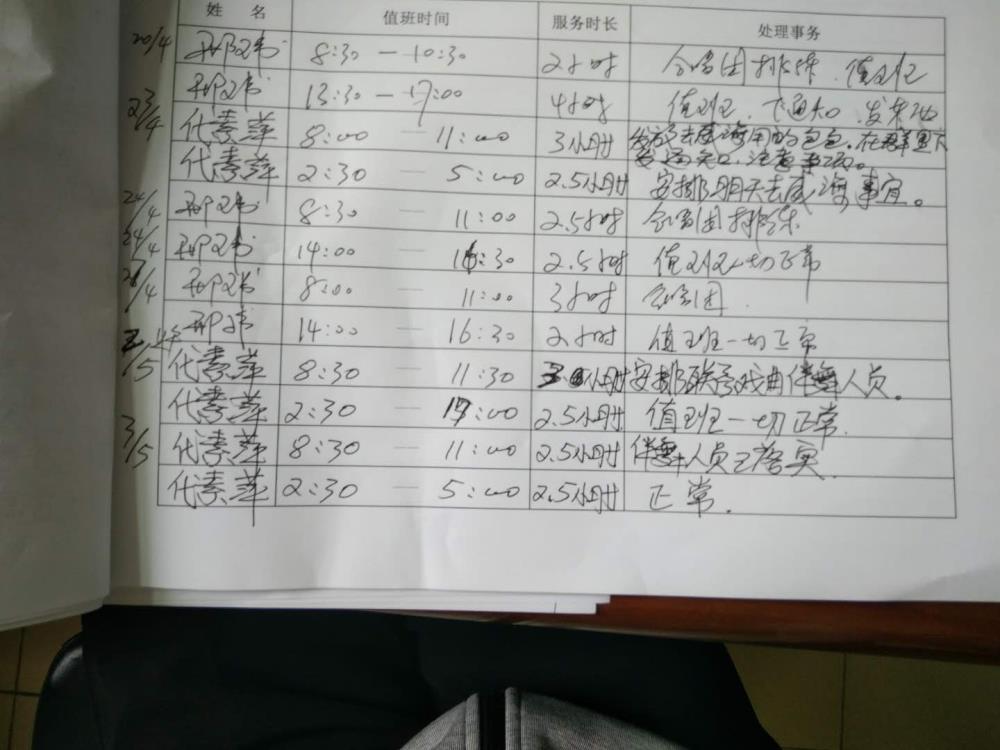 姓 名 值班时间 服务时长 处理事务
20/4 8:30 — 10:30 2小时 合唱团排练、值班
13:30 — 17:00 4小时 值班、下通知、发
23/4 代素萍 8:00 — 11:00 3小时 发放去威海用的包包。在群里下
通知，注意事项。
代素萍 2:30 — 5:00 2.5小时 安排明天去威海事宜。
24/4 8:30 — 11:00 2.5小时 合唱团排练
24/4 14:00 — 16:30 2.5小时 值班一切正常
/4 8:00 — 11:00 3小时 合唱团.
14:00 — 16:30 2小时 值班一切正常
2/5 代素萍 8:30 — 11:30 3小时 安排联系戏曲伴舞人员。
代素萍 2:30 — 17:00 2.5小时 值班一切正常.
3/5 代素萍 8:30 — 11:00 2.5小时 伴舞人员已落实.
代素萍 2:30 — 5:00 2.5小时 正常.